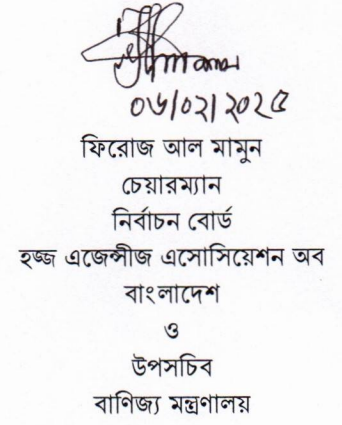 ০৬/০২/২০২৫
ফিরোজ আল মামুন
চেয়ারম্যান
নির্বাচন বোর্ড
হজ্জ এজেন্সীজ এসোসিয়েশন অব
বাংলাদেশ
ও
উপসচিব
বাণিজ্য মন্ত্রণালয়